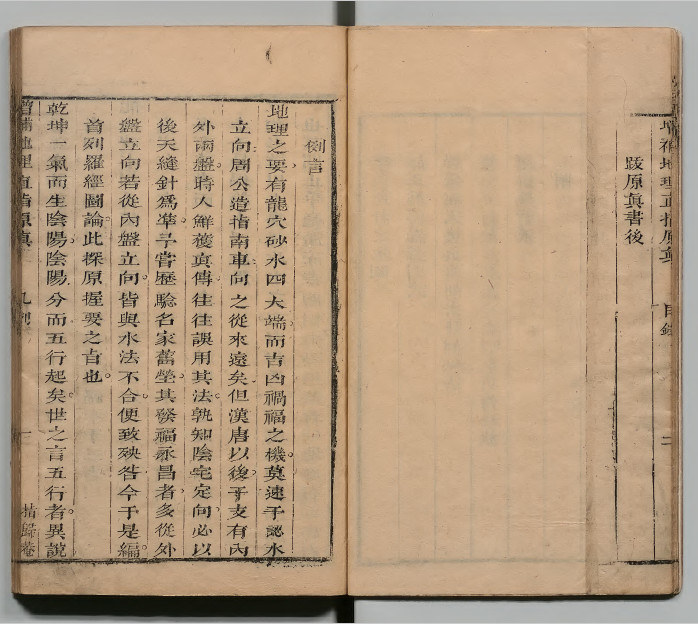 增補地理直指原眞 目錄 二
跋原眞書後
例言
地理之要有龍穴砂水四大端而吉凶禍福之機莫速于認水
立向周公造指南車向之從來遠矣但漢唐以後于支有內
外兩盤時人鮮獲眞傳往往誤用其法孰知陰宅定向必以
後天縫針爲準予嘗歷驗名家舊塋其發福永昌者多從外
盤立向若從內盤立向皆與水法不合便致殃咎今于是編
首列羅經圖論此探原握要之旨也
乾坤一氣而生陰陽陰陽分而五行起矣世之言五行者異說
增補地理直指原眞 凡例 一 指歸卷